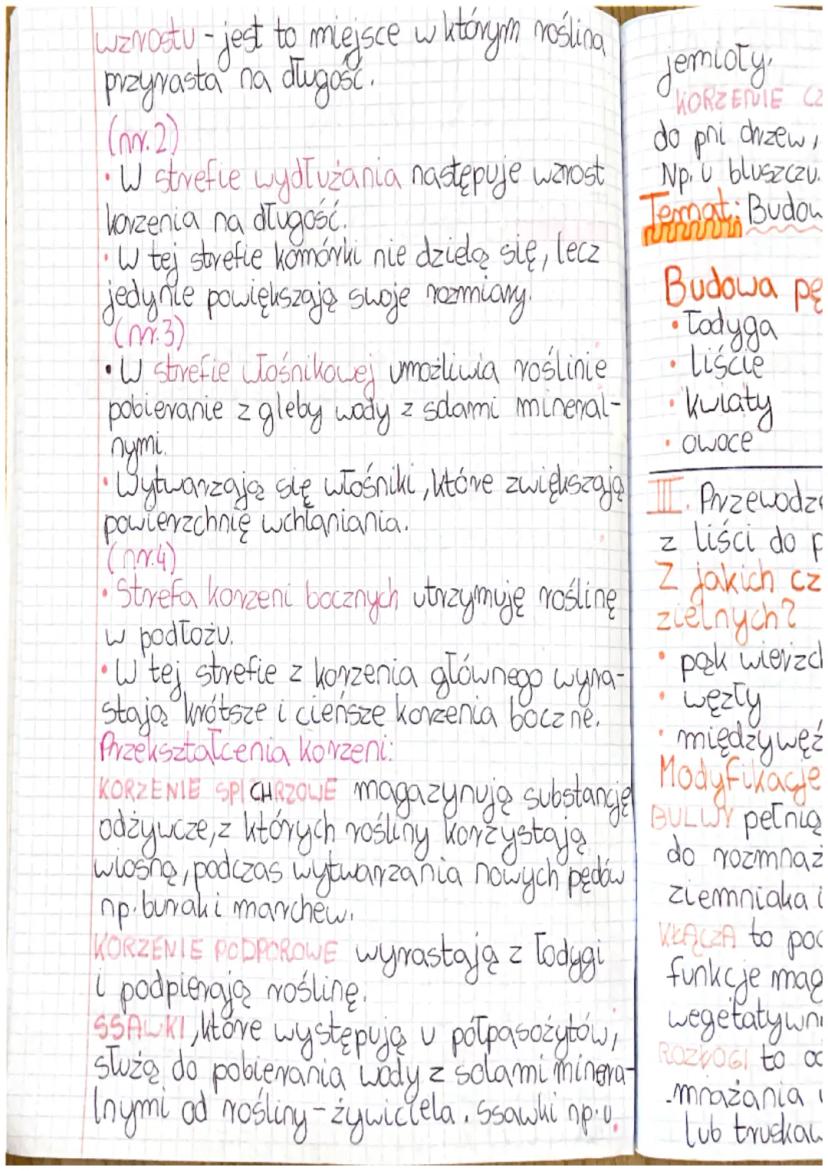 wzrostu - jest to miejsce w którym roślina
przyrasta na długość.
(nr.2)
• W strefie wydłużania następuje wzrost
korzenia na długość.
• W tej strefie komórki nie dzielą się, lecz
jedynie powiększają swoje rozmiary.
(nr.3)
• W strefie włośnikowej umożliwia roślinie
pobieranie z gleby wody z solami mineral-
nymi.
• Wytwarzają się włośniki, które zwiększają
powierzchnię wchłaniania.
(nr.4)
• Strefa korzeni bocznych utrzymuję roślinę
w podłożu.
• W tej strefie z korzenia głównego wyra-
stają krótsze i cieńsze korzenia boczne.
Przekształcenia korzeni:
KORZENIE SPICHRZOWE magazynują substancję
odżywcze, z których rośliny korzystają
wiosną, podczas wytwarzania nowych pędów
np. burak i marchew.
KORZENIE PODPOROWE wyrastają z łodygi
i podpierają roślinę.
SSAWKI, które występują u półpasożytów,
służą do pobierania wody z solami minera-
lnymi od rośliny - żywiciela. Ssawki np. u
jemioły.
KORZENIE CZ
do pni drzew,
Np. u bluszczu.
Temat: Budow
Budowa pę
• łodyga
• liście
• kwiaty
• owoce
III. Przewodze
z liści do p
Z jakich cz
zielnych?
• pąk wierzch
• węzły
• międzywęź
Modyfikacje
BULWY pełnią
do rozmnaż
ziemniaka i
KŁĄCZA to pod
funkcje mag
wegetatywn
ROZŁOGI to od
-mnażania u
lub truskaw